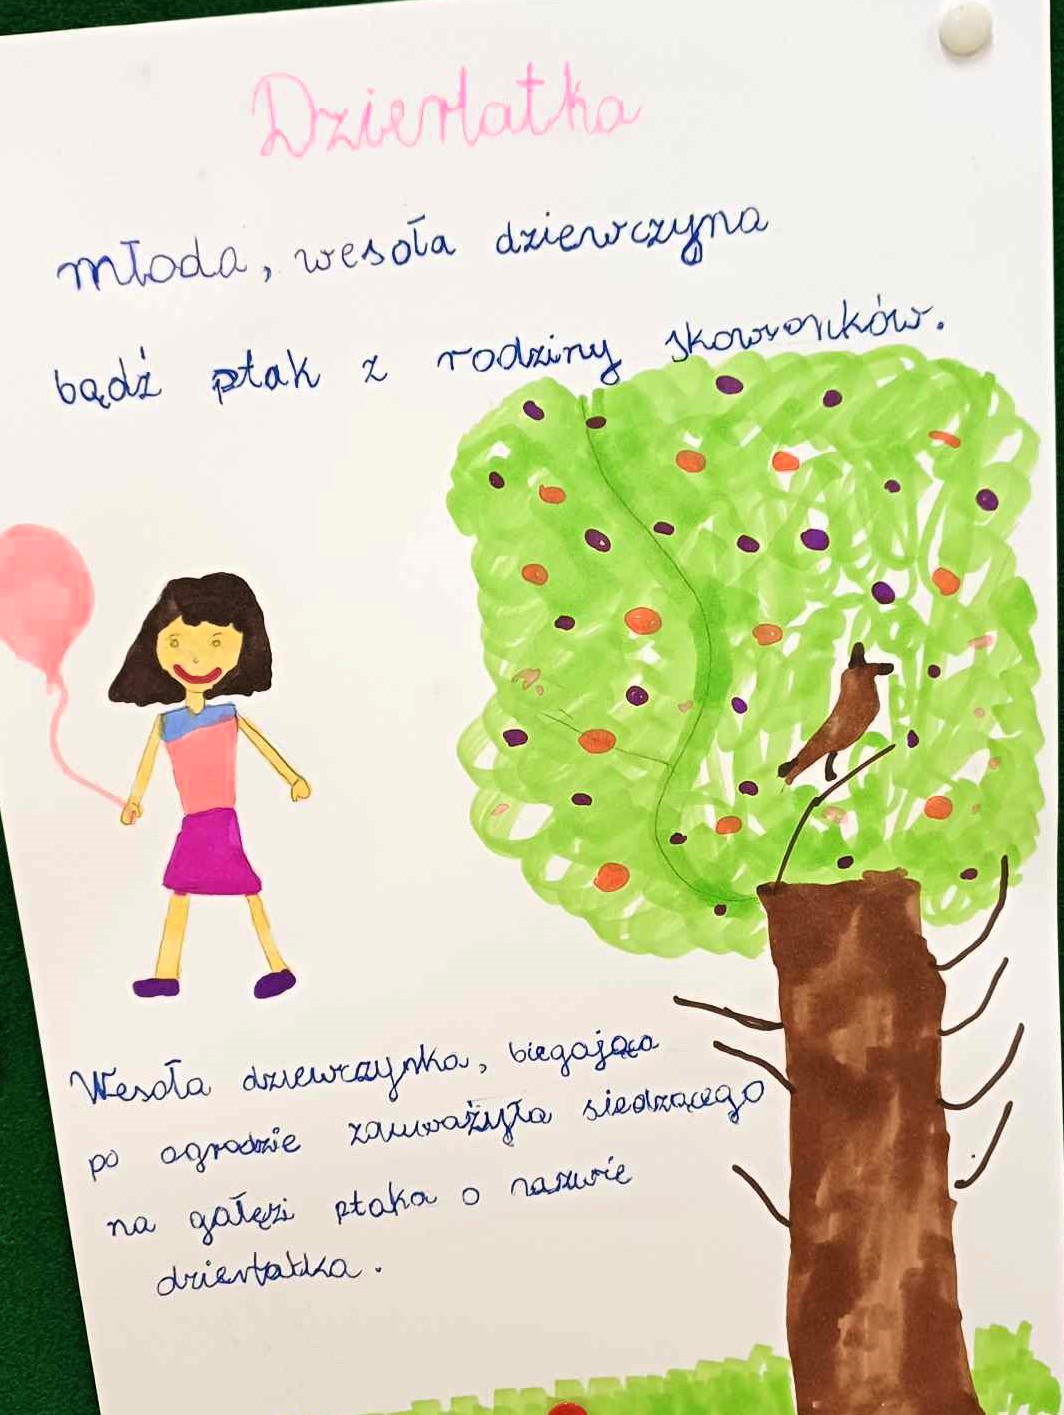 Dzierlatka
młoda, wesoła dziewczyna
bądź ptak z rodziny skowronków.
Wesoła dziewczynka, biegająca
po ogrodzie zauważyła siedzącego
na gałęzi ptaka o nazwie
dzierlatka.